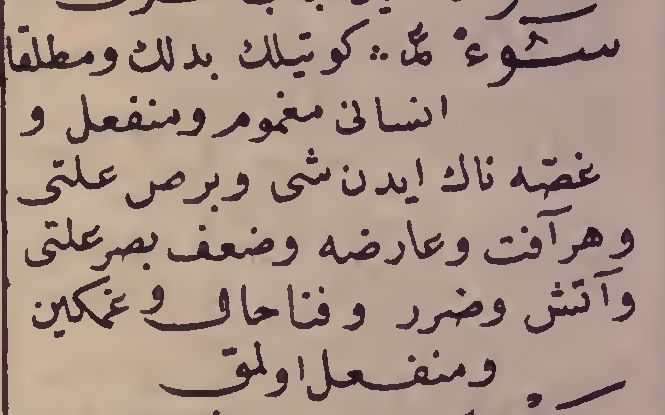 سُوءْ مّ :: كوتيلك بدلك ومطلقا
انسانى مغموم ومنفعل و
غصّه ناك ايدن شى وبرص علتى
وهر آفت وعارضه وضعف بصر علتى
وآتش وضرر وفنا حال و غمكين
ومنفعل اولمق